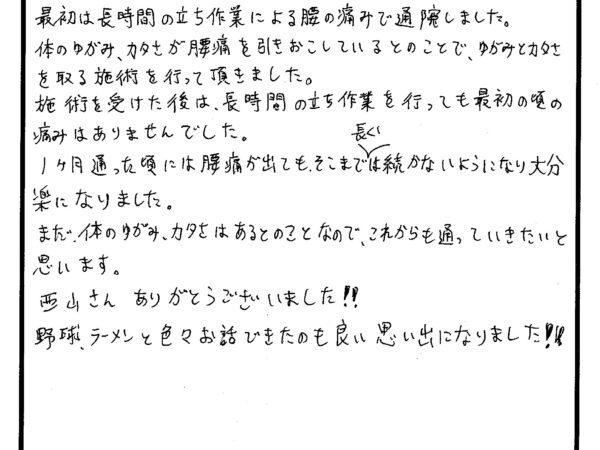 最初は長時間の立ち作業による腰の痛みで通院しました。
体のゆがみ、カタさが腰痛を引きおこしているとのことで、ゆがみとカタさ
を取る施術を行って頂きました。
施術を受けた後は、長時間の立ち作業を行っても最初の頃の
痛みはありませんでした。
1ヶ月通った頃には腰痛が出ても、そこまで長くは続かないようになり大分
楽になりました。
まだ、体のゆがみ、カタさはあるとのことなので、これからも通っていきたいと
思います。
西山さん ありがとうございました!!
野球、ラーメンと色々お話できたのも良い思い出になりました!!